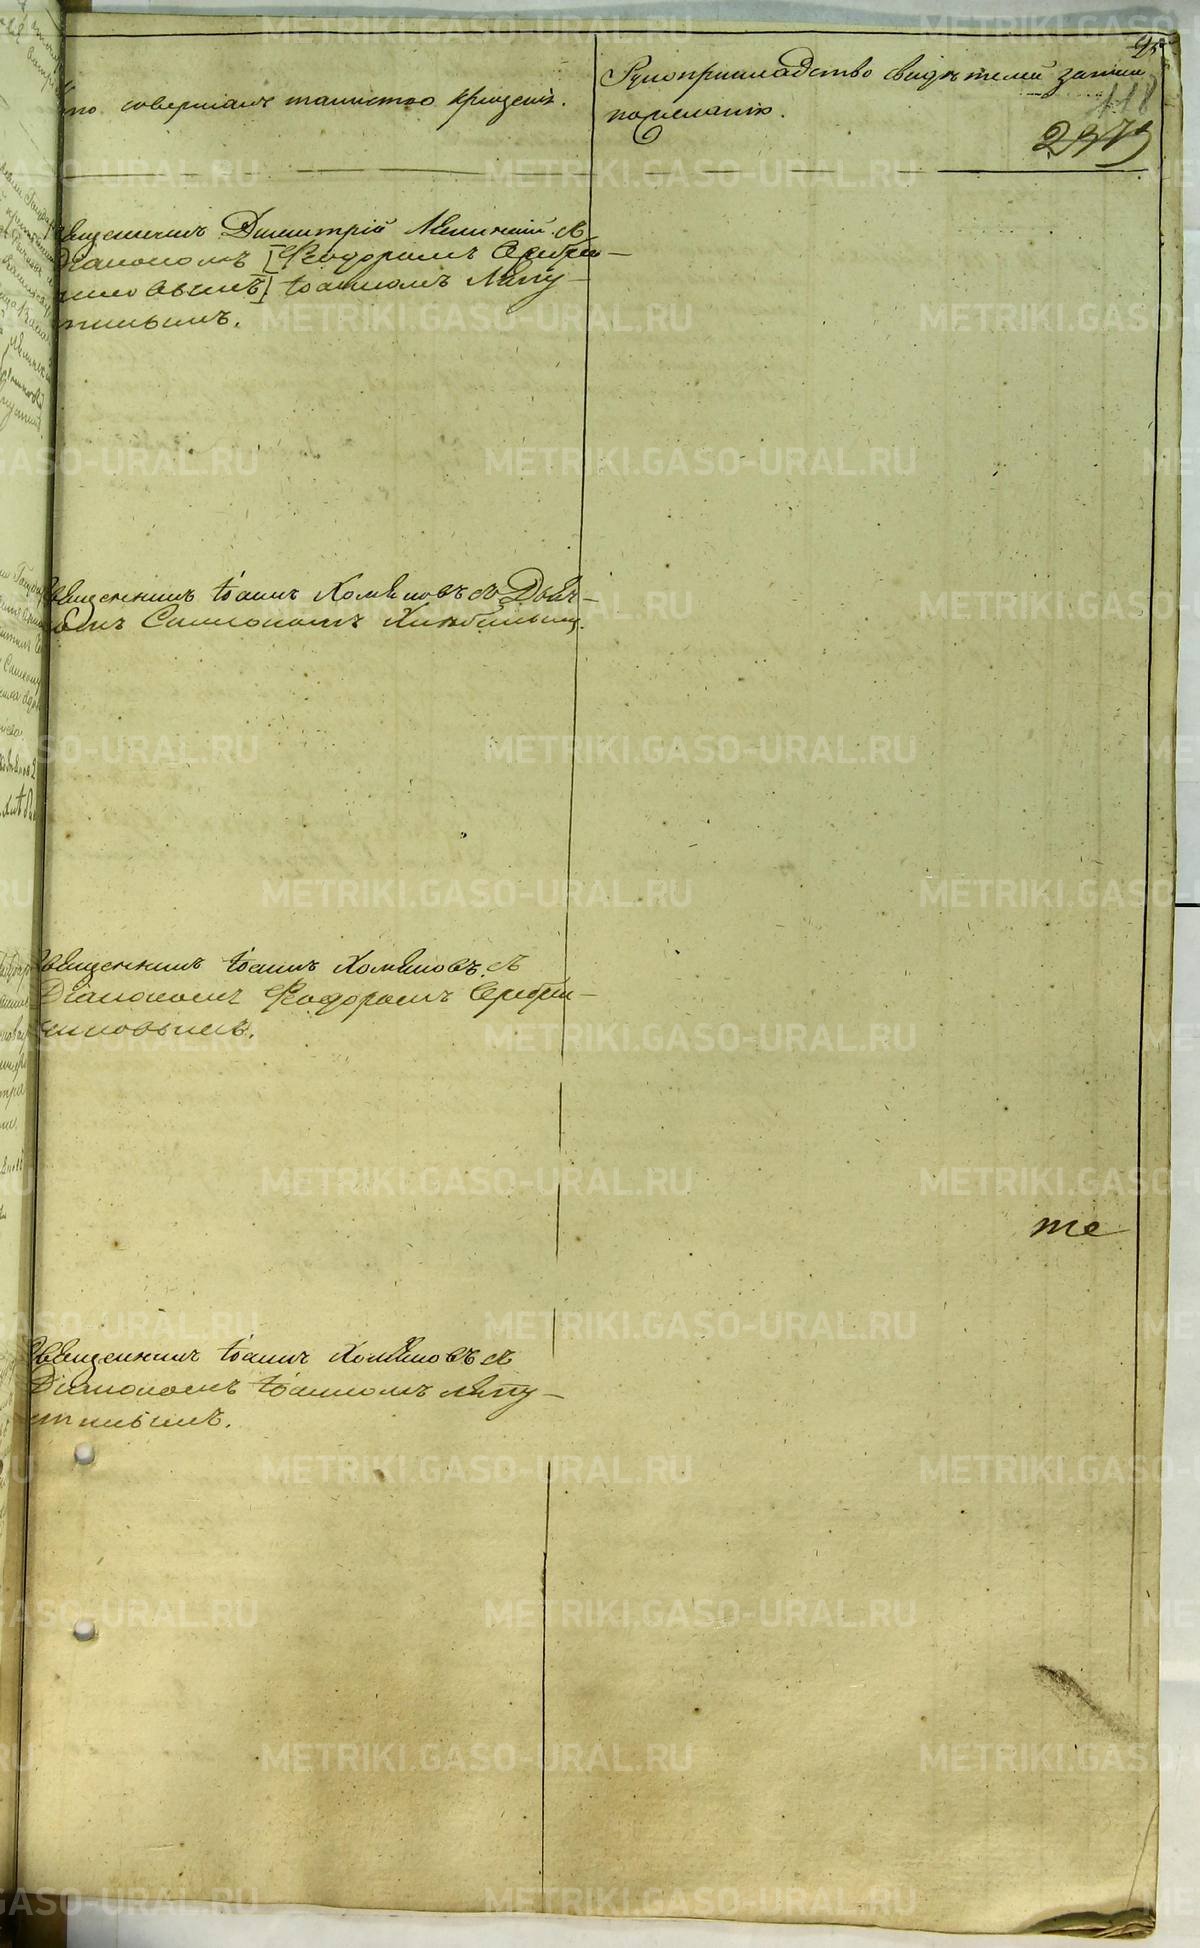 Кто совершалъ таинство крещенія.
Рукоприкладство свидѣтелей записи
по желанію.
95
118
2373
Священникъ Димитрій съ
Діакономъ Феодоромъ Серебрен-
никовымъ Іоанномъ Лапу-
тинымъ.
Священникъ Іоаннъ Хомяковъ съ Дьяч-
комъ Симеономъ
Священникъ Іоаннъ Хомяковъ съ
Діакономъ Феодоромъ Серебрен-
никовымъ.
те
Священникъ Іоаннъ Хомяковъ съ
Діакономъ Іоанномъ Лапу-
тинымъ.
METRIKI.GASO-URAL.RU